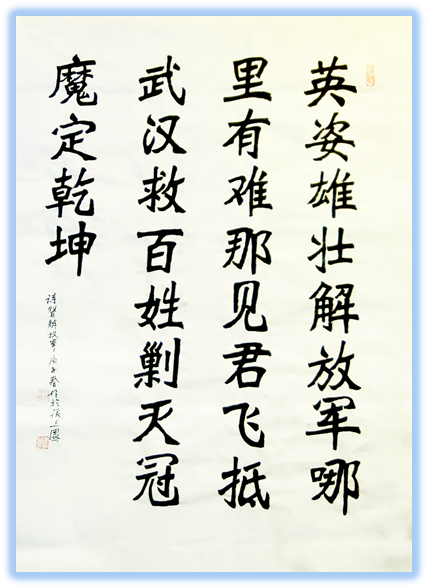 英姿雄壮解放军哪
里有难那见君飞抵
武汉救百姓剿灭冠
魔定乾坤
诗贊解放军庚子春作於